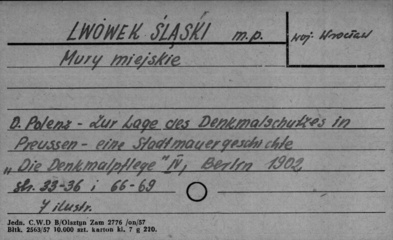 LWÓWEK ŚLĄSKI m.p. woj. Wrocław
Mury miejskie
O. Polenz - Zur Lage des Denkmalschutzes in
Preussen - eine Stadtmauergeschichte
„Die Denkmalpflege" IV, Berlin 1902
str. 33-36 i 66-69
7 ilustr.
Jedn. C.W.D B/Olsztyn Zam 2776 /on/57
Bltk. 2563/57 10.000 szt. karton kl. 7 g 210.